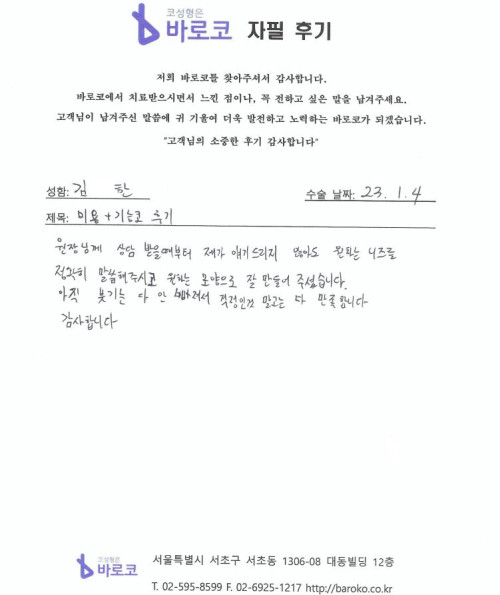 코성형은
바로코 자필 후기
저희 바로코를 찾아주셔서 감사합니다.
바로코에서 치료받으시면서 느낀 점이나, 꼭 전하고 싶은 말을 남겨주세요.
고객님이 남겨주신 말씀에 귀 기울여 더욱 발전하고 노력하는 바로코가 되겠습니다.
"고객님의 소중한 후기 감사합니다"
성함: 김 한 수술 날짜: 23. 1. 4
제목: 미용 + 기능코 후기
원장님께 상담 받을때부터 제가 얘기드리지 않아도 원하는 니즈를
정확히 말씀해주시고 원하는 모양으로 잘 만들어 주셨습니다.
아직 붓기는 다 안 빠져서 걱정인것 말고는 다 만족합니다
감사합니다
코성형은
바로코 서울특별시 서초구 서초동 1306-08 대동빌딩 12층
T. 02-595-8599 F. 02-6925-1217 http://baroko.co.kr